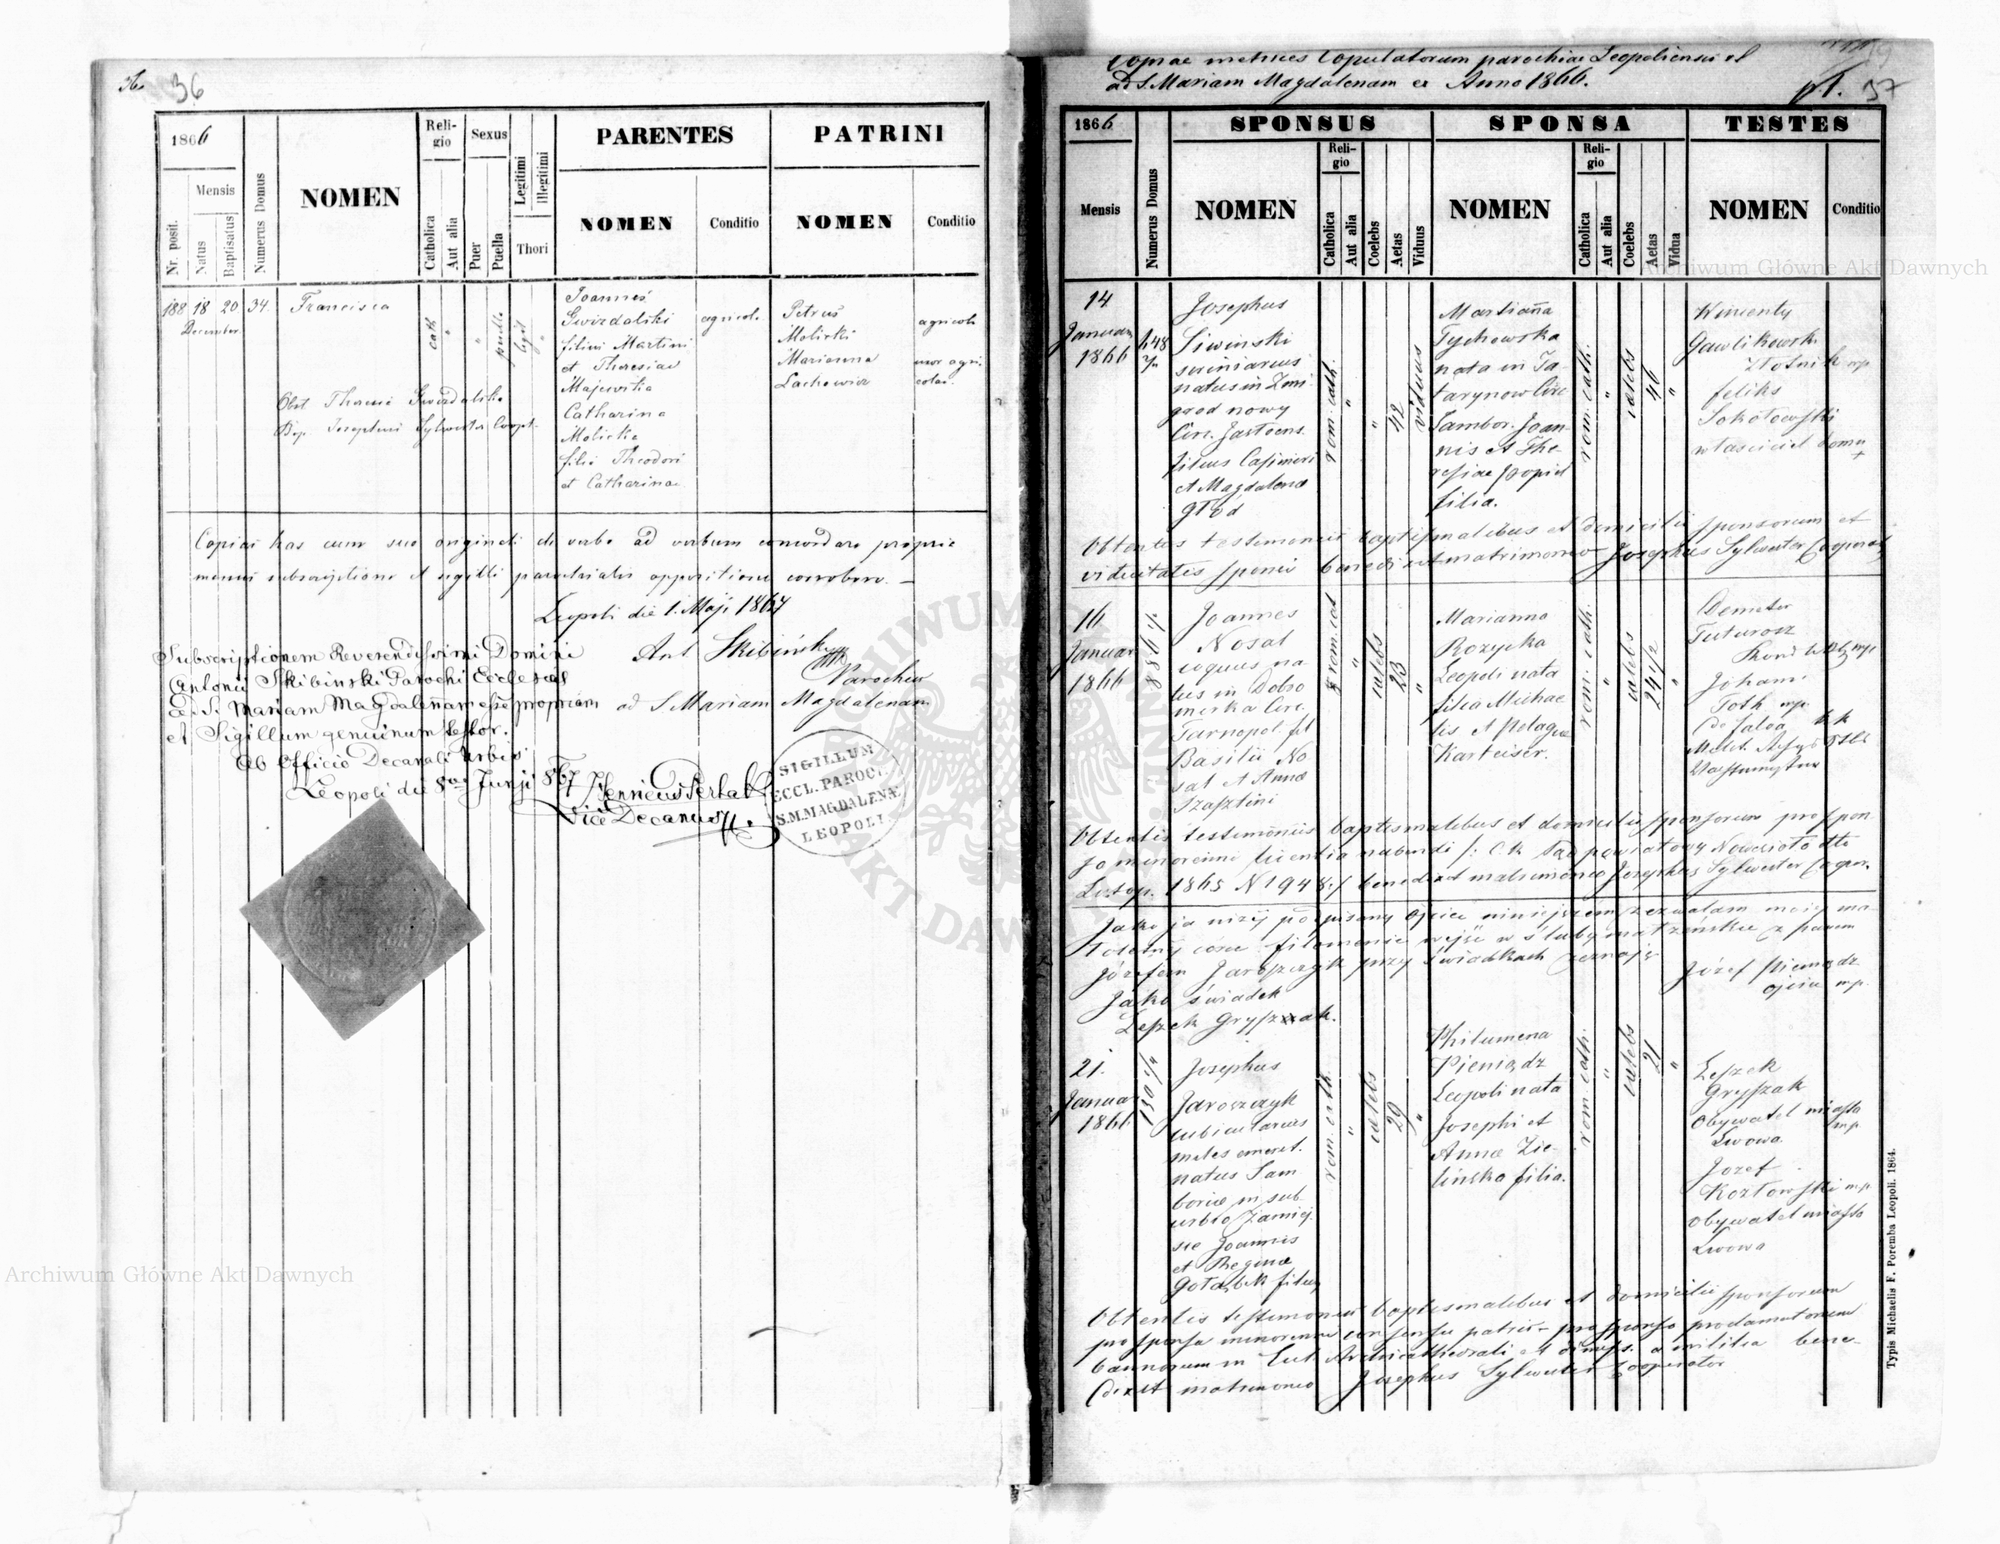 36.
36
1866
Nr. posit.
Mensis
Natus
Baptisatus
Numerus Domus
NOMEN
Reli-
gio
Catholica
Aut alia
Sexus
Puer
Puella
Legitimi
illegitimi
Thori
PARENTES
NOMEN
Conditio
PATRINI
NOMEN
Conditio
188 18 20 34.
December
Francisca
cath
"
"
puella
legit
"
Joannes
Gwizdalski
filius Martini
et Theresiae
Majewska
Catharina
Molicka
filia Theodori
et Catharinae
agricola
Petrus
Molicki
Marianna
Lachowicz
agricola
uxor agri-
colae
Bap. Josephus Sylwester Coopt.
Copias has cum suo originali de verbo ad verbum concordare proprie
manus subscriptione et sigilli parochialis appositione corroboro. —
Leopoli die 1. Maji 1867
Ant Skibiński
Parochus
ad S. Mariam Magdalenam
Subscriptionem Reverendissimi Domini
Antonii Skibinski Parochi Ecclesiae
ad S. Mariam Magdalenam esse propriam
et Sigillum genuinum testor.
Ab Officio Decanali Urbis
Leopoli die 8va Junij 867
Vice Decanus
SIGILLUM
ECCL. PAROCH.
S.M.MAGDALENÆ
LEOPOLI.
Copiae metrices Copulatorum parochiae Leopoliensis
ad S. Mariam Magdalenam ex Anno 1866.
p. 1.
37
1866
Mensis
Numerus Domus
SPONSUS
NOMEN
Reli-
gio
Catholica
Aut alia
Coelebs
Aetas
Viduus
SPONSA
NOMEN
Reli-
gio
Catholica
Aut alia
Coelebs
Aetas
Vidua
TESTES
NOMEN
Conditio
14
Januar
1866
648
Josephus
Siwinski
natus in
grod nowy
Circ.
filius Casimiri
et Magdalena
Głód
rom. cath.
"
"
42
viduus
Marianna
Tychowska
nata in Ta-
tarynow Circ
Sambor. Joan-
nis et The-
resiae
filia.
rom. cath.
"
celebs
46
"
Wincenty
Gawlikowski
Złotnik mp
feliks
Sokołowski
właściciel domu
+
Obtentis testimoniis baptismalibus et domicilii sponsorum et
viduitatis sponsi benedixit matrimonio Josephus Sylwester Cooperat
16
Januar
1866
Joannes
Nosal
coquus na-
tus in Dobro
mirka Circ.
Tarnopol. fil
Basilii No
sal et Anna
rom. cat
"
celebs
23
"
Marianna
Rozycka
Leopoli nata
filia Michae
lis et Pelagia
rom. cath.
"
celebs
24 1/2
"
Demeter
Tuturosz
Johann
Toth mp.
Obtentis testimoniis baptismalibus et domicilii sponsorum pro spon-
so minorenni licentia nubendi /: C. k Sąd powiatowy
Listop. 1865 N 1948./ benedixit matrimonio Josephus Sylwester Cooper.
Jako ja niżej podpisany ojciec niniejszem zezwalam mojej ma-
łoletniej córce filomenie wejść w śluby małżeńskie z panem
Józefem Jaroszczyk przy świadkach zeznaję
Józef Pieniądz
ojciec mp.
Jako świadek
Leszek Gryszak.
21.
Januar
1866
150
Josephus
Jaroszczyk
cubicularius
miles emerit.
natus Sam
boriae in sub
urbio Zamiej-
sce Joannis
et Regina
Gołąbek filius
rom. cath.
"
celebs
29
"
Philumena
Pieniądz
Leopoli nata
Josephi et
Anna Zie-
lińska filia.
rom. cath.
"
celebs
21
"
Leszek
Gryszak
obywatel miasta
Lwowa mp.
Jozef
Kozłowski mp.
obywatel miasta
Lwowa
Obtentis testimoniis baptismalibus et domicilii sponsorum
pro sponsa minorenni consensu patris pro sponso proclamationum
bannorum in Eccl. Archicathedrali et dimiss. a militia bene-
dixit matrimonio Josephus Sylwester Cooperator
Typis Michaelis F. Poremba Leopoli. 1864.
ARCHIWUM GŁÓWNE AKT DAWNYCH
Archiwum Główne Akt Dawnych
Archiwum Główne Akt Dawnych